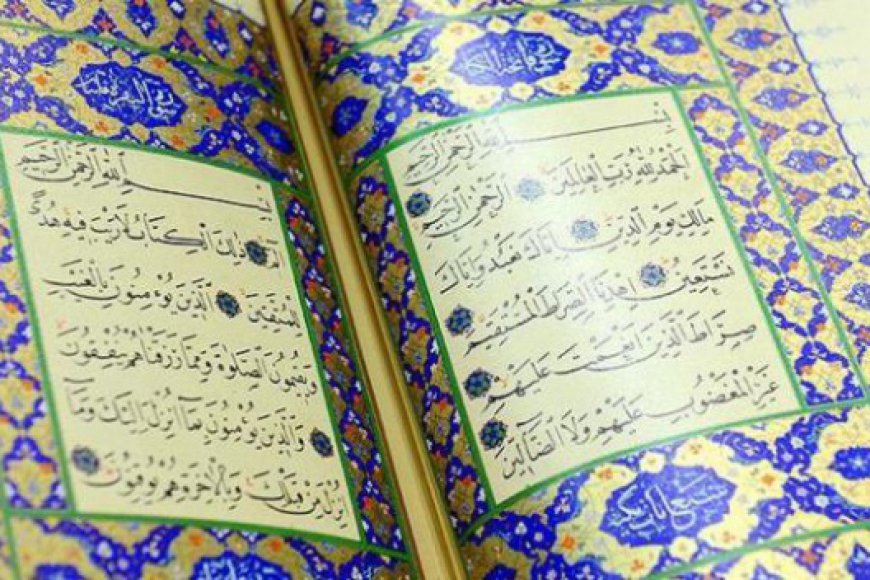 فاتحة الكتاب
بِسْمِ اللهِ الرَّحْمٰنِ الرَّحِيمِ
اَلْحَمْدُ لِلّٰهِ رَبِّ الْعَالَمِينَ الرَّحْمٰنِ الرَّحِيمِ
مَالِكِ يَوْمِ الدِّينِ اِيَّاكَ نَعْبُدُ وَاِيَّاكَ
نَسْتَعِينُ اِهْدِنَا الصِّرَاطَ الْمُسْتَقِيمَ
صِرَاطَ الَّذِينَ اَنْعَمْتَ عَلَيْهِمْ
غَيْرِ الْمَغْضُوبِ عَلَيْهِمْ وَلَا الضَّالِّينَ
سبع ايات مكية
سورة البقرة
بِسْمِ اللهِ الرَّحْمٰنِ الرَّحِيمِ
الٓمٓ ذٰلِكَ الْكِتَابُ لَا رَيْبَ فِيهِ هُدًى
لِلْمُتَّقِينَ اَلَّذِينَ يُؤْمِنُونَ بِالْغَيْبِ
وَيُقِيمُونَ الصَّلٰوةَ وَمِمَّا رَزَقْنَاهُمْ يُنْفِقُونَ
وَالَّذِينَ يُؤْمِنُونَ بِمَٓا اُنْزِلَ اِلَيْكَ وَمَٓا
اُنْزِلَ مِنْ قَبْلِكَ وَبِالْاٰخِرَةِ هُمْ يُوقِنُونَ